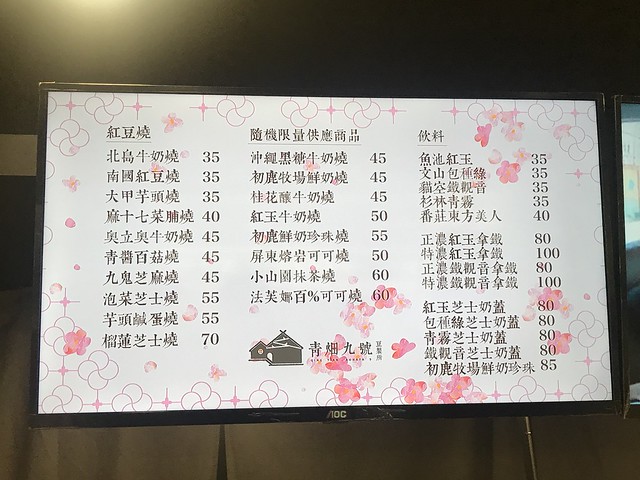 紅豆燒
北島牛奶燒 35
南國紅豆燒 35
大甲芋頭燒 35
麻十七菜脯燒 40
奧立奧牛奶燒 45
青醬百菇燒 45
九鬼芝麻燒 45
泡菜芝士燒 55
芋頭鹹蛋燒 55
榴蓮芝士燒 70
隨機限量供應商品
沖繩黑糖牛奶燒 45
初鹿牧場鮮奶燒 45
桂花釀牛奶燒 45
紅玉牛奶燒 50
初鹿鮮奶珍珠燒 55
屏東熔岩可可燒 50
小山園抹茶燒 60
法芙娜百%可可燒 60
青畑九號
豆製所
飲料
魚池紅玉 35
文山包種綠 35
貓空鐵觀音 35
杉林青霧 35
番莊東方美人 40
正濃紅玉拿鐵 80
特濃紅玉拿鐵 100
正濃鐵觀音拿鐵 80
特濃鐵觀音拿鐵 100
紅玉芝士奶蓋 80
包種綠芝士奶蓋 80
青霧芝士奶蓋 80
鐵觀音芝士奶蓋 80
初鹿牧場鮮奶珍珠 85
AOC